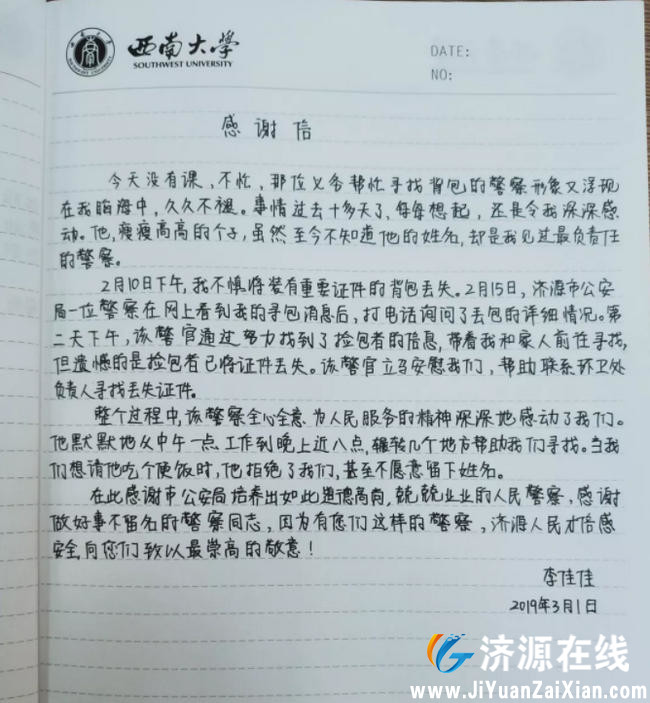 西南大学
SOUTHWEST UNIVERSITY
DATE:
NO:
感谢信
今天没有课，不忙，那位义务帮忙寻找背包的警察形象又浮现
在我脑海中，久久不褪。事情过去十多天了，每每想起，还是令我深深感
动。他，瘦瘦高高的个子，虽然至今不知道他的姓名，却是我见过最负责任
的警察。
2月10日下午，我不慎将装有重要证件的背包丢失。2月15日，济源市公安
局一位警察在网上看到我的寻包消息后，打电话询问了丢包的详细情况。第
二天下午，该警官通过努力找到了捡包者的信息，带着我和家人前往寻找，
但遗憾的是捡包者已将证件丢失。该警官立马安慰我们，帮助联系环卫处
负责人寻找丢失证件。
整个过程中，该警察全心全意为人民服务的精神深深地感动了我们。
他默默地从中午一点工作到晚上近八点，辗转几个地方帮助我们寻找。当我
们想请他吃个便饭时，他拒绝了我们，甚至不愿意留下姓名。
在此感谢市公安局培养出如此道德高尚，兢兢业业的人民警察，感谢
做好事不留名的警察同志，因为有您们这样的警察，济源人民才倍感
安全，向您们致以最崇高的敬意！
李佳佳
2019年3月1日
济源在线
www.JiYuanZaiXian.com